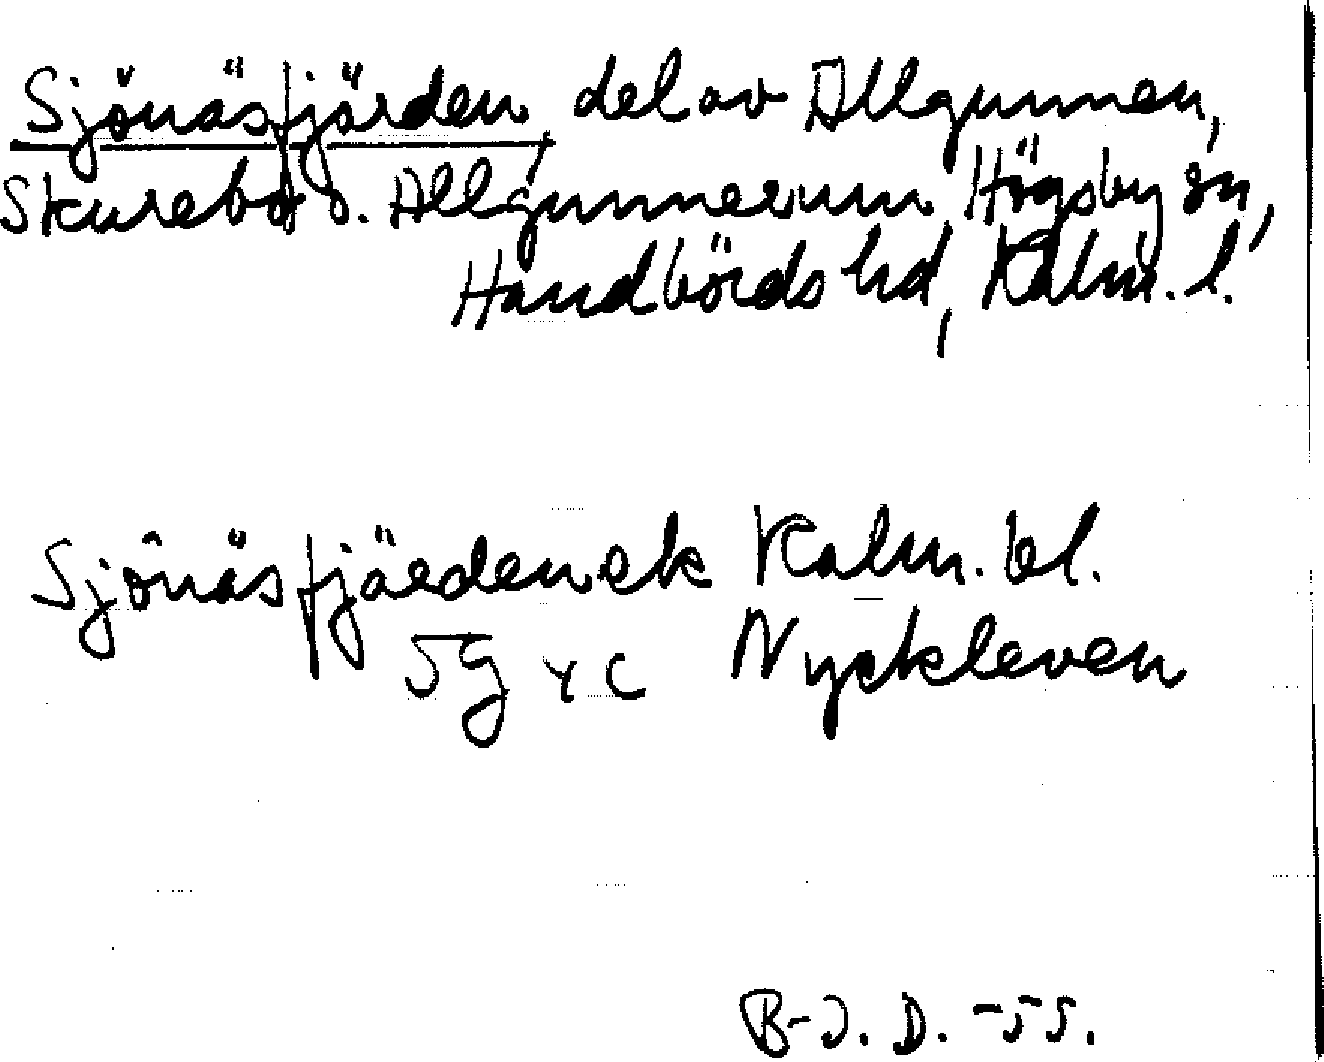 Sjönäsfjärden, del av Allgunnen,
Skurebo o. Allgunnerum, Högsby sn,
Handbörds hd, Kalm. l.
Sjönäsfjärden ek Kalm. bl.
5g YC Nyckleven
B-J. D. -55.